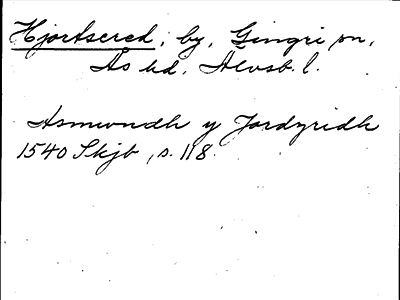 Hjortsered, by, Gingri sn,
Ås hd, Älvsb. l.
Asmwndh y Jordzridh
1540 Skjb, s. 118.